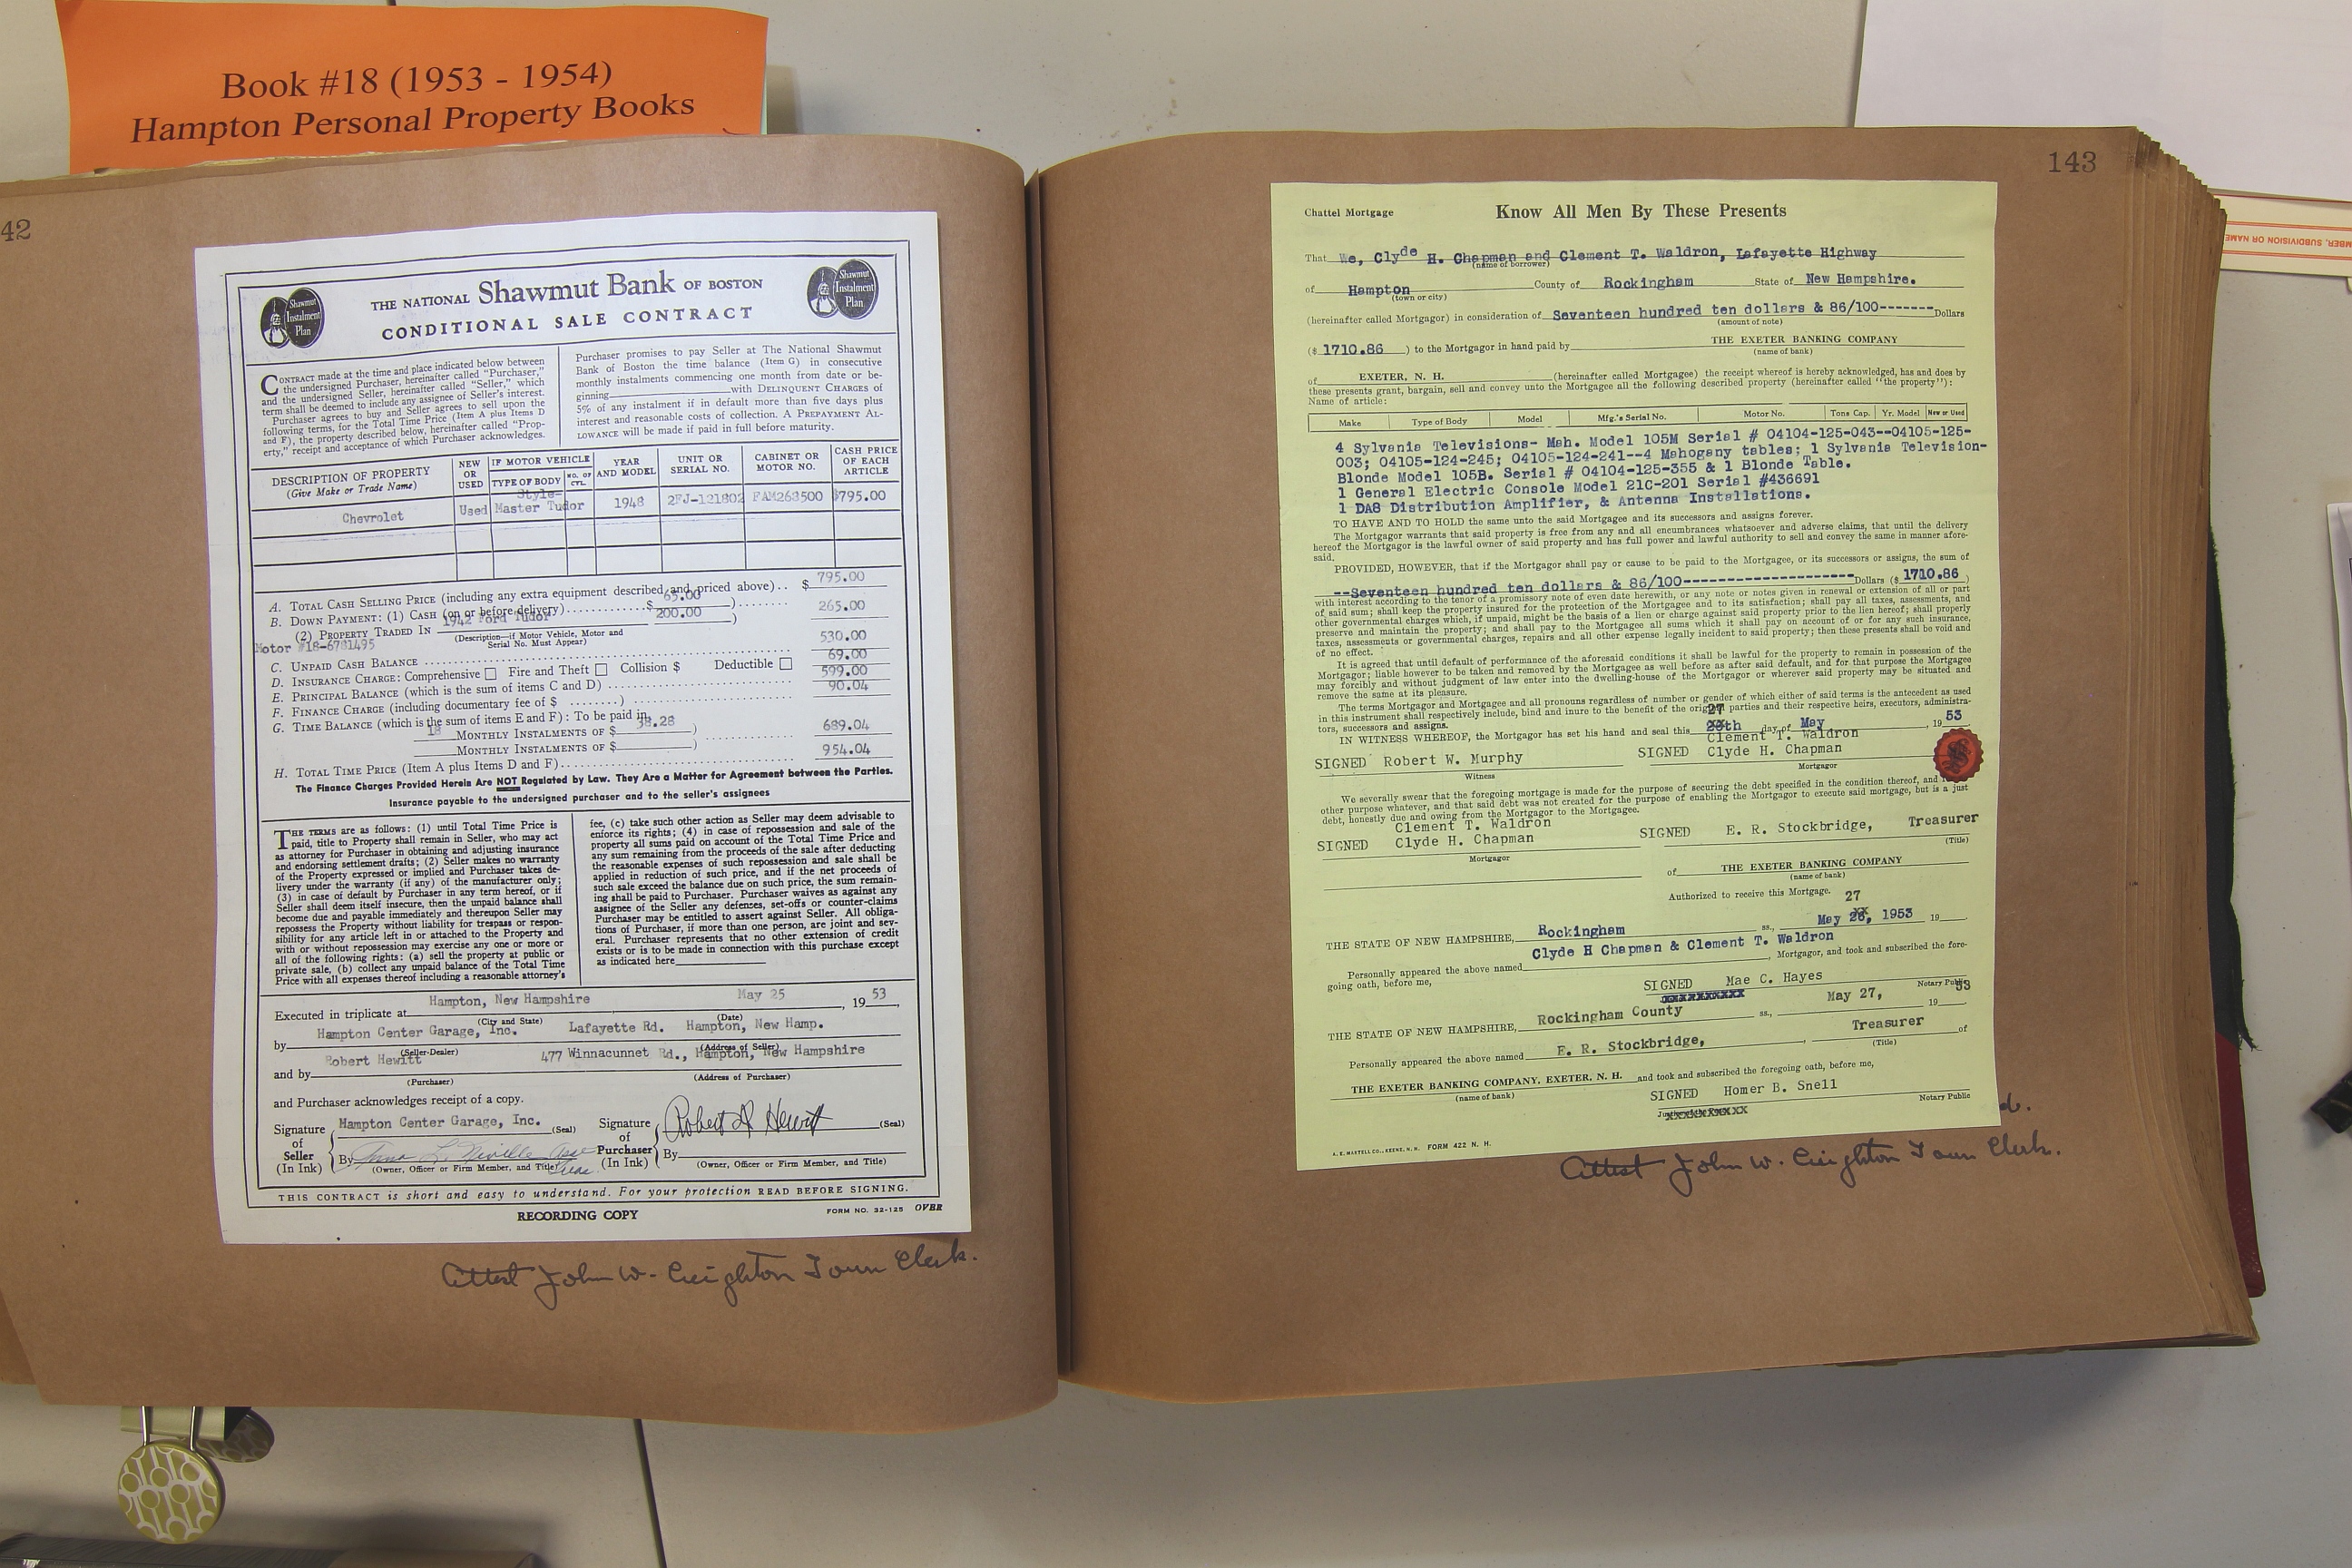 Book #18 (1953 - 1954)
Hampton Personal Property Books
42
Shawmut
Instalment
Plan
THE NATIONAL Shawmut Bank OF BOSTON
CONDITIONAL SALE CONTRACT
Shawmut
Instalment
Plan
CONTRACT made at the time and place indicated below between
the undersigned Purchaser, hereinafter called "Purchaser,"
and the undersigned Seller, hereinafter called "Seller," which
term shall be deemed to include any assignee of Seller's interest.
Purchaser agrees to buy and Seller agrees to sell upon the
following terms, for the Total Time Price (Item A plus Items D
and F), the property described below, hereinafter called "Prop-
erty," receipt and acceptance of which Purchaser acknowledges.
Purchaser promises to pay Seller at The National Shawmut
Bank of Boston the time balance (Item G) in consecutive
monthly instalments commencing one month from date or be-
ginning with DELINQUENT CHARGES of
5% of any instalment if in default more than five days plus
interest and reasonable costs of collection. A PREPAYMENT AL-
LOWANCE will be made if paid in full before maturity.
DESCRIPTION OF PROPERTY
(Give Make or Trade Name)
NEW
OR
USED
IF MOTOR VEHICLE
TYPE OF BODY
NO. OF
CYL.
YEAR
AND MODEL
UNIT OR
SERIAL NO.
CABINET OR
MOTOR NO.
CASH PRICE
OF EACH
ARTICLE
Chevrolet Used Style- Master Tudor 1948 2FJ-121802 FAM268500 $795.00
A. TOTAL CASH SELLING PRICE (including any extra equipment described and priced above).. $ 795.00
B. DOWN PAYMENT: (1) CASH (on or before delivery)............$ 65.00 )........ 265.00
(2) PROPERTY TRADED IN 1942 Ford Tudor 200.00 )
(Description—if Motor Vehicle, Motor and
Serial No. Must Appear)
Motor #18-6781495
C. UNPAID CASH BALANCE 530.00
D. INSURANCE CHARGE: Comprehensive Fire and Theft Collision $ Deductible 69.00
E. PRINCIPAL BALANCE (which is the sum of items C and D) 599.00
F. FINANCE CHARGE (including documentary fee of $ ........) 90.04
G. TIME BALANCE (which is the sum of items E and F): To be paid in
18 MONTHLY INSTALMENTS OF $ 38.28 ) 689.04
MONTHLY INSTALMENTS OF $ )
H. TOTAL TIME PRICE (Item A plus Items D and F) 954.04
The Finance Charges Provided Herein Are NOT Regulated by Law. They Are a Matter for Agreement between the Parties.
Insurance payable to the undersigned purchaser and to the seller's assignees
THE TERMS are as follows: (1) until Total Time Price is
paid, title to Property shall remain in Seller, who may act
as attorney for Purchaser in obtaining and adjusting insurance
and endorsing settlement drafts; (2) Seller makes no warranty
of the Property expressed or implied and Purchaser takes de-
livery under the warranty (if any) of the manufacturer only;
(3) in case of default by Purchaser in any term hereof, or if
Seller shall deem itself insecure, then the unpaid balance shall
become due and payable immediately and thereupon Seller may
repossess the Property without liability for trespass or respon-
sibility for any article left in or attached to the Property and
with or without repossession may exercise any one or more or
all of the following rights: (a) sell the property at public or
private sale, (b) collect any unpaid balance of the Total Time
Price with all expenses thereof including a reasonable attorney's
fee, (c) take such other action as Seller may deem advisable to
enforce its rights; (4) in case of repossession and sale of the
property all sums paid on account of the Total Time Price and
any sum remaining from the proceeds of the sale after deducting
the reasonable expenses of such repossession and sale shall be
applied in reduction of such price, and if the net proceeds of
such sale exceed the balance due on such price, the sum remain-
ing shall be paid to Purchaser. Purchaser waives as against any
assignee of the Seller any defenses, set-offs or counter-claims
Purchaser may be entitled to assert against Seller. All obliga-
tions of Purchaser, if more than one person, are joint and sev-
eral. Purchaser represents that no other extension of credit
exists or is to be made in connection with this purchase except
as indicated here
Executed in triplicate at Hampton, New Hampshire May 25, 19 53,
(City and State) (Date)
by Hampton Center Garage, Inc. Lafayette Rd. Hampton, New Hamp.
(Seller-Dealer) (Address of Seller)
and by Robert Hewitt 477 Winnacunnet Rd., Hampton, New Hampshire
(Purchaser) (Address of Purchaser)
and Purchaser acknowledges receipt of a copy.
Signature
of
Seller
(In Ink)
Hampton Center Garage, Inc. (Seal)
By Anna L. Neville Asst
Treas.
(Owner, Officer or Firm Member, and Title)
Signature
of
Purchaser
(In Ink)
Robert A Hewitt (Seal)
By
(Owner, Officer or Firm Member, and Title)
THIS CONTRACT is short and easy to understand. For your protection READ BEFORE SIGNING.
RECORDING COPY
FORM NO. 32-125 OVER
Attest John W. Creighton Town Clerk.
143
Chattel Mortgage Know All Men By These Presents
That We, Clyde H. Chapman and Clement T. Waldron, Lafayette Highway
(name of borrower)
of Hampton County of Rockingham State of New Hampshire.
(town or city)
(hereinafter called Mortgagor) in consideration of Seventeen hundred ten dollars & 86/100-------Dollars
(amount of note)
($ 1710.86 ) to the Mortgagor in hand paid by THE EXETER BANKING COMPANY
(name of bank)
of EXETER, N. H. (hereinafter called Mortgagee) the receipt whereof is hereby acknowledged, has and does by
these presents grant, bargain, sell and convey unto the Mortgagee all the following described property (hereinafter called "the property"):
Name of article:
Make Type of Body Model Mfg.'s Serial No. Motor No. Tons Cap. Yr. Model New or Used
4 Sylvania Televisions- Mah. Model 105M Serial # 04104-125-043--04105-125-
003; 04105-124-245; 04105-124-241--4 Mahogany tables; 1 Sylvania Television-
Blonde Model 105B. Serial # 04104-125-355 & 1 Blonde Table.
1 General Electric Console Model 21C-201 Serial #436691
1 DA8 Distribution Amplifier, & Antenna Installations.
TO HAVE AND TO HOLD the same unto the said Mortgagee and its successors and assigns forever.
The Mortgagor warrants that said property is free from any and all encumbrances whatsoever and adverse claims, that until the delivery
hereof the Mortgagor is the lawful owner of said property and has full power and lawful authority to sell and convey the same in manner afore-
said.
PROVIDED, HOWEVER, that if the Mortgagor shall pay or cause to be paid to the Mortgagee, or its successors or assigns, the sum of
--Seventeen hundred ten dollars & 86/100--------------------Dollars ($ 1710.86 )
with interest according to the tenor of a promissory note of even date herewith, or any note or notes given in renewal or extension of all or part
of said sum; shall keep the property insured for the protection of the Mortgagee and to its satisfaction; shall pay all taxes, assessments, and
other governmental charges which, if unpaid, might be the basis of a lien or charge against said property prior to the lien hereof; shall properly
preserve and maintain the property; and shall pay to the Mortgagee all sums which it shall pay on account of or for any such insurance,
taxes, assessments or governmental charges, repairs and all other expense legally incident to said property; then these presents shall be void and
of no effect.
It is agreed that until default of performance of the aforesaid conditions it shall be lawful for the property to remain in possession of the
Mortgagor; liable however to be taken and removed by the Mortgagee as well before as after said default, and for that purpose the Mortgagee
may forcibly and without judgment of law enter into the dwelling-house of the Mortgagor or wherever said property may be situated and
remove the same at its pleasure.
The terms Mortgagor and Mortgagee and all pronouns regardless of number or gender of which either of said terms is the antecedent as used
in this instrument shall respectively include, bind and inure to the benefit of the original parties and their respective heirs, executors, administra-
tors, successors and assigns.
27
IN WITNESS WHEREOF, the Mortgagor has set his hand and seal this day of May, 19 53
Clement T. Waldron
SIGNED Robert W. Murphy SIGNED Clyde H. Chapman
Witness Mortgagor
We severally swear that the foregoing mortgage is made for the purpose of securing the debt specified in the condition thereof, and
other purpose whatever, and that said debt was not created for the purpose of enabling the Mortgagor to execute said mortgage, but is a just
debt, honestly due and owing from the Mortgagor to the Mortgagee.
Clement T. Waldron
SIGNED Clyde H. Chapman SIGNED E. R. Stockbridge, Treasurer
Mortgagor (Title)
of THE EXETER BANKING COMPANY
(name of bank)
Authorized to receive this Mortgage.
27
THE STATE OF NEW HAMPSHIRE, Rockingham ss., May 26, 1953 19
Clyde H Chapman & Clement T. Waldron
Personally appeared the above named , Mortgagor, and took and subscribed the fore-
going oath, before me,
SIGNED Mae C. Hayes
Notary Public
THE STATE OF NEW HAMPSHIRE, Rockingham County ss., May 27, 19 53
Personally appeared the above named E. R. Stockbridge, Treasurer of
(Title)
THE EXETER BANKING COMPANY, EXETER, N. H. and took and subscribed the foregoing oath, before me,
(name of bank)
SIGNED Homer B. Snell
Notary Public
A. E. MARTELL CO., KEENE, N. H. FORM 422 N. H.
Attest John W. Creighton Town Clerk.
MBER, SUBDIVISION OR NAME